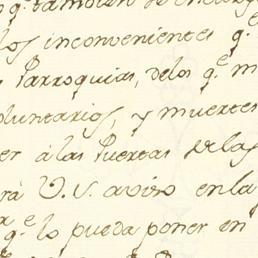 q.e tambien se encarg
los inconvenientes q.e
s Parroquias, delos q.e m
oluntarios, y muertes
er á las Puertas delas
rá V.S. aviso en la
q.e lo pueda poner en